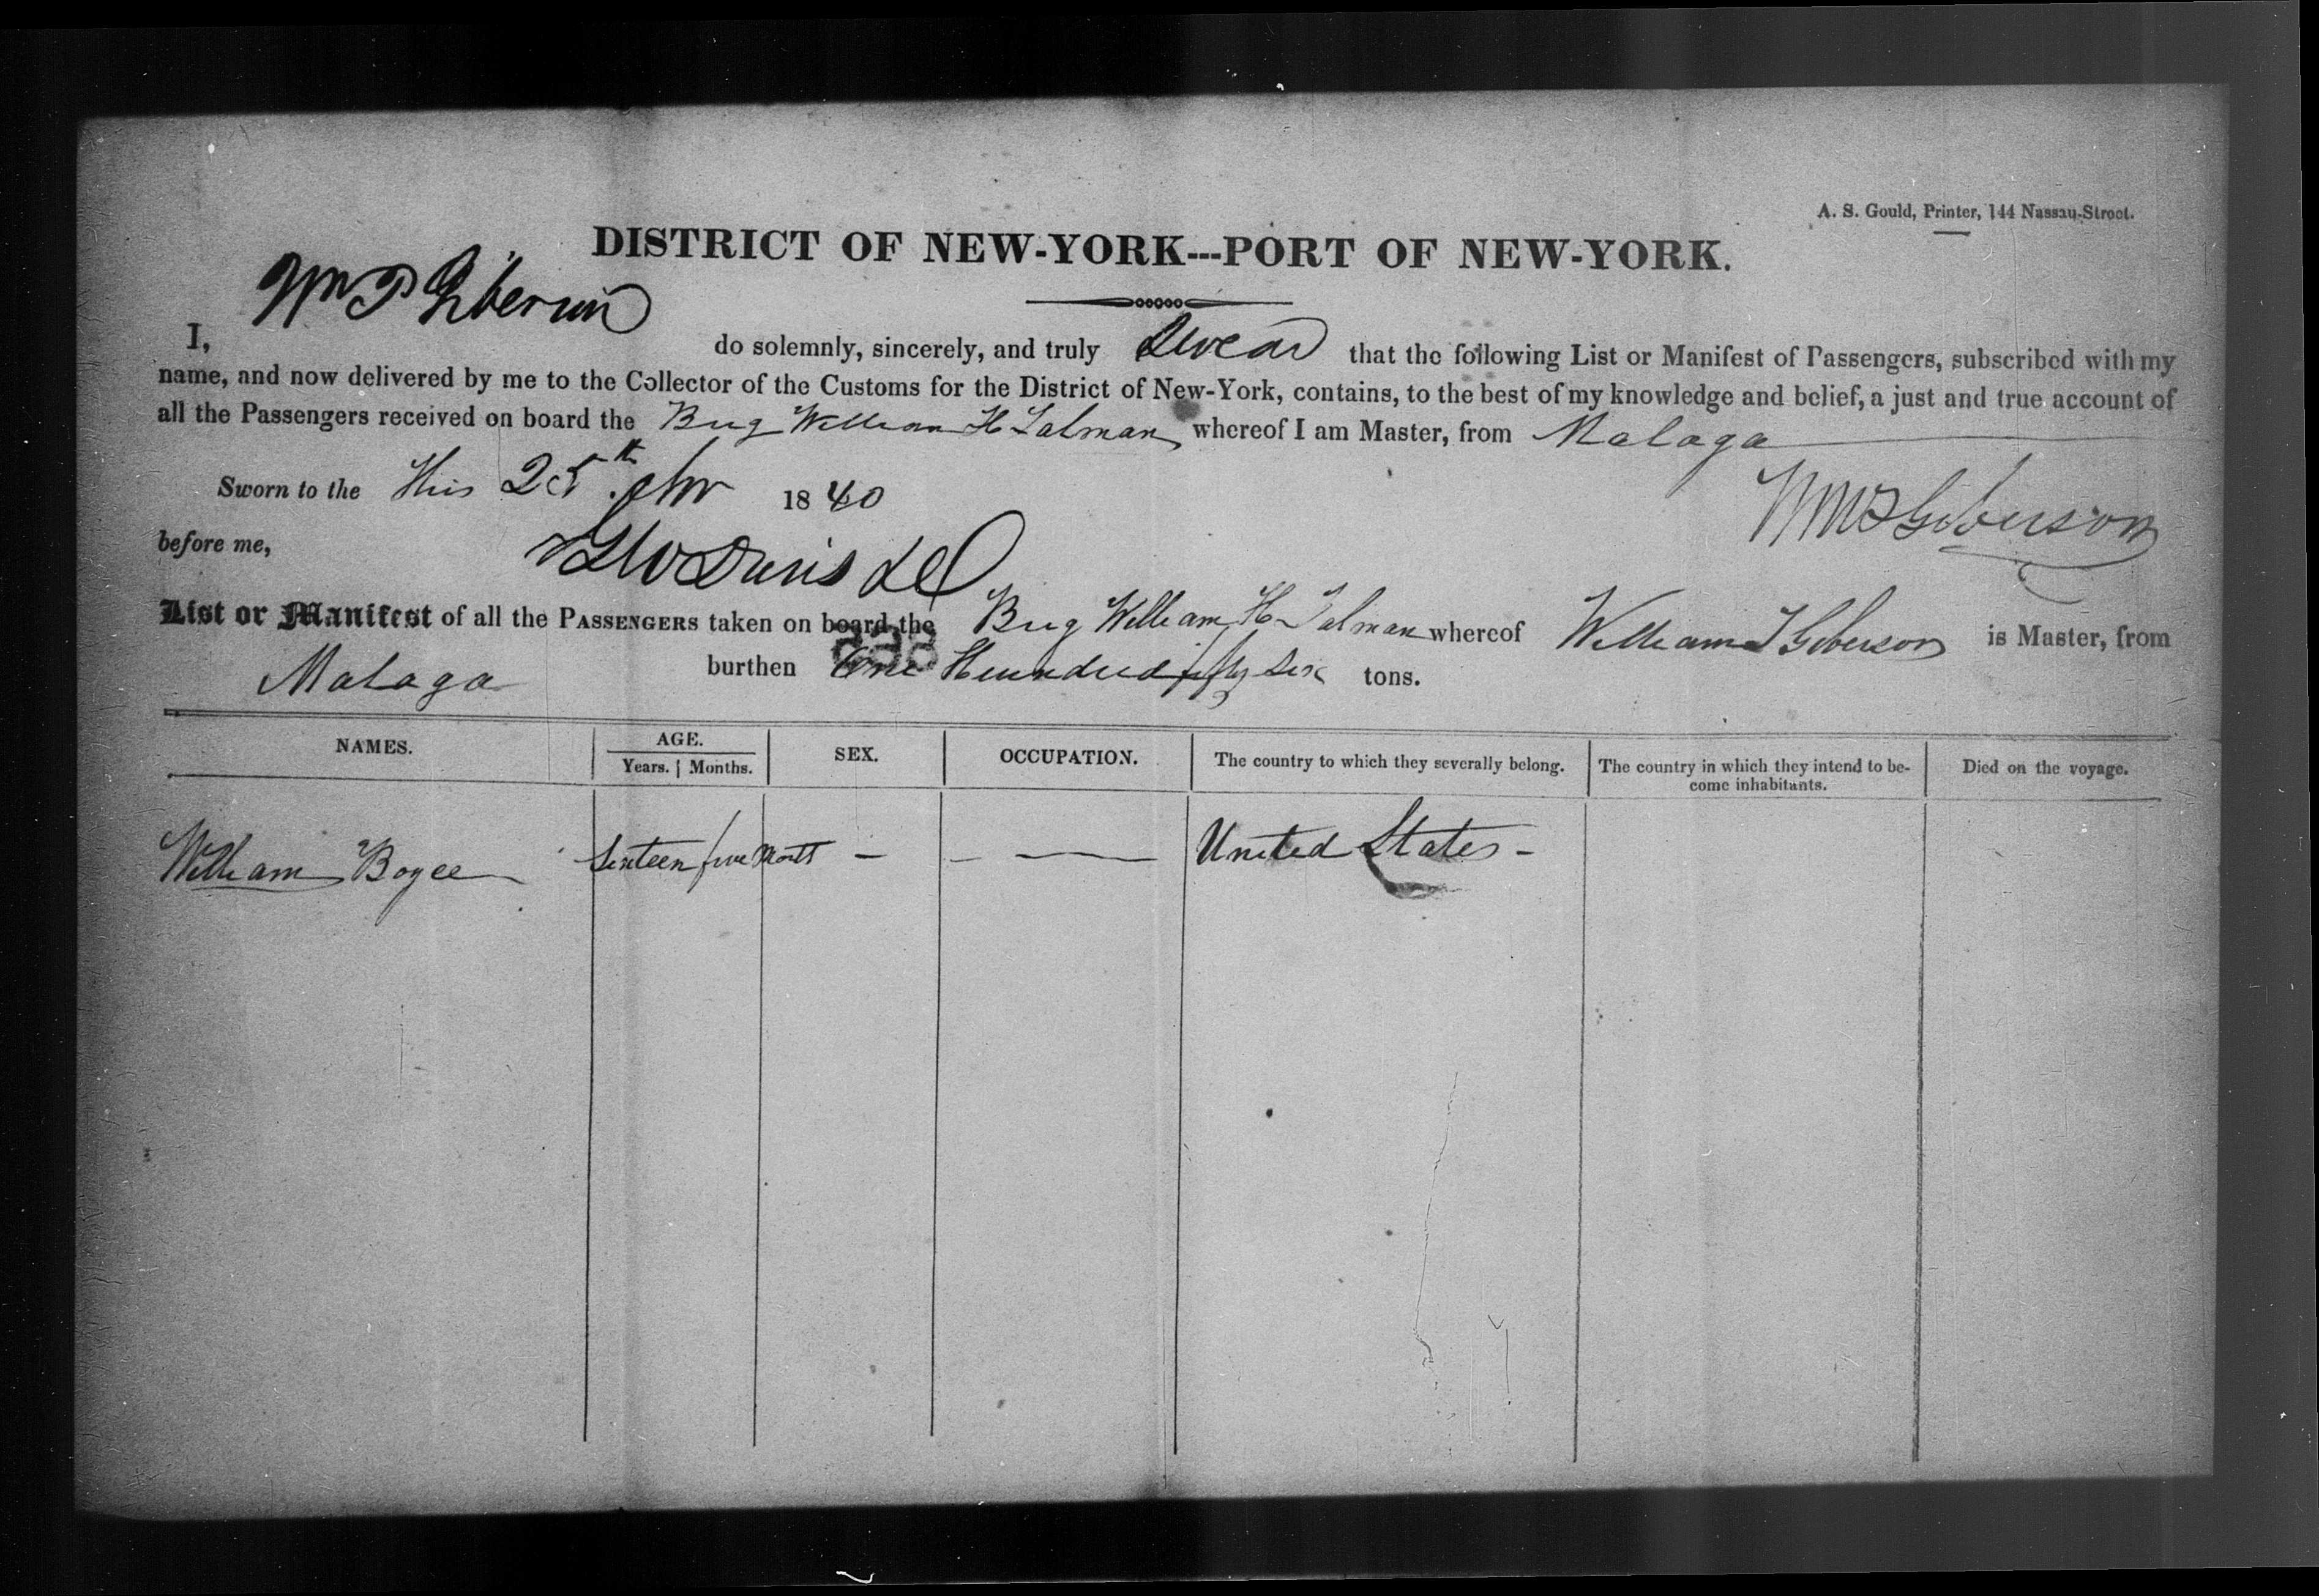 A. S. Gould, Printer, 144 Nassau-Street.
DISTRICT OF NEW-YORK---PORT OF NEW-YORK.
I, Wm T Giberson do solemnly, sincerely, and truly Swear that the following List or Manifest of Passengers, subscribed with my
name, and now delivered by me to the Collector of the Customs for the District of New-York, contains, to the best of my knowledge and belief, a just and true account of
all the Passengers received on board the Brig William H Talman whereof I am Master, from Malaga
Sworn to the this 25th 1840
Wm T Giberson
before me,
List or Manifest of all the PASSENGERS taken on board the Brig William H Talman whereof William T Giberson is Master, from
Malaga burthen One Hundred fifty Six tons.
NAMES. AGE. SEX. OCCUPATION. The country to which they severally belong. The country in which they intend to be- Died on the voyage.
Years. | Months. come inhabitants.
William Boyce Sixteen five Months – – — United States –